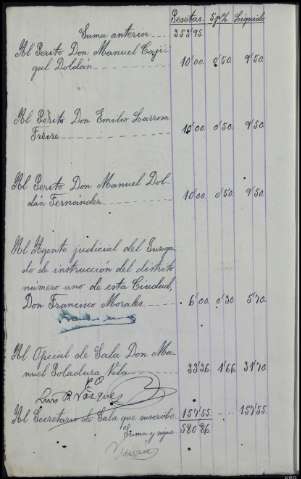 Pesetas. 5p% Líquido
Suma anterior 252'95
Al Perito Don Manuel
Doldán 10'00 0'50 9'50
Al Perito Don Emilio
Freire 10'00 0'50 9'50
Al Perito Don Manuel Dol-
dán Fernández 10'00 0'50 9'50
Al Agente judicial del Juzga-
do de instrucción del distrito
número uno de esta Ciudad,
Don Francisco Morales 6'00 0'30 5'70
Al Oficial de Sala Don Ma-
nuel Poladura Vila 33'36 1'66 31'70
P.O.
Al Secretario de Sala que suscribe 157'55 157'55
Suma y sigue 580'86